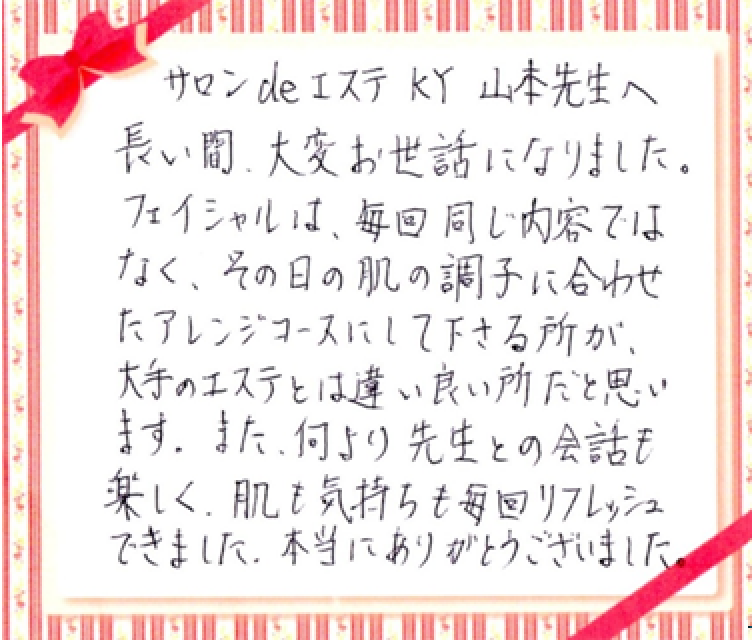 サロンdeエステ KY 山本先生へ
長い間、大変お世話になりました。
フェイシャルは、毎回同じ内容では
なく、その日の肌の調子に合わせ
たアレンジコースにして下さる所が、
大手のエステとは違い良い所だと思い
ます。また、何より先生との会話も
楽しく、肌も気持ちも毎回リフレッシュ
できました。本当にありがとうございました。